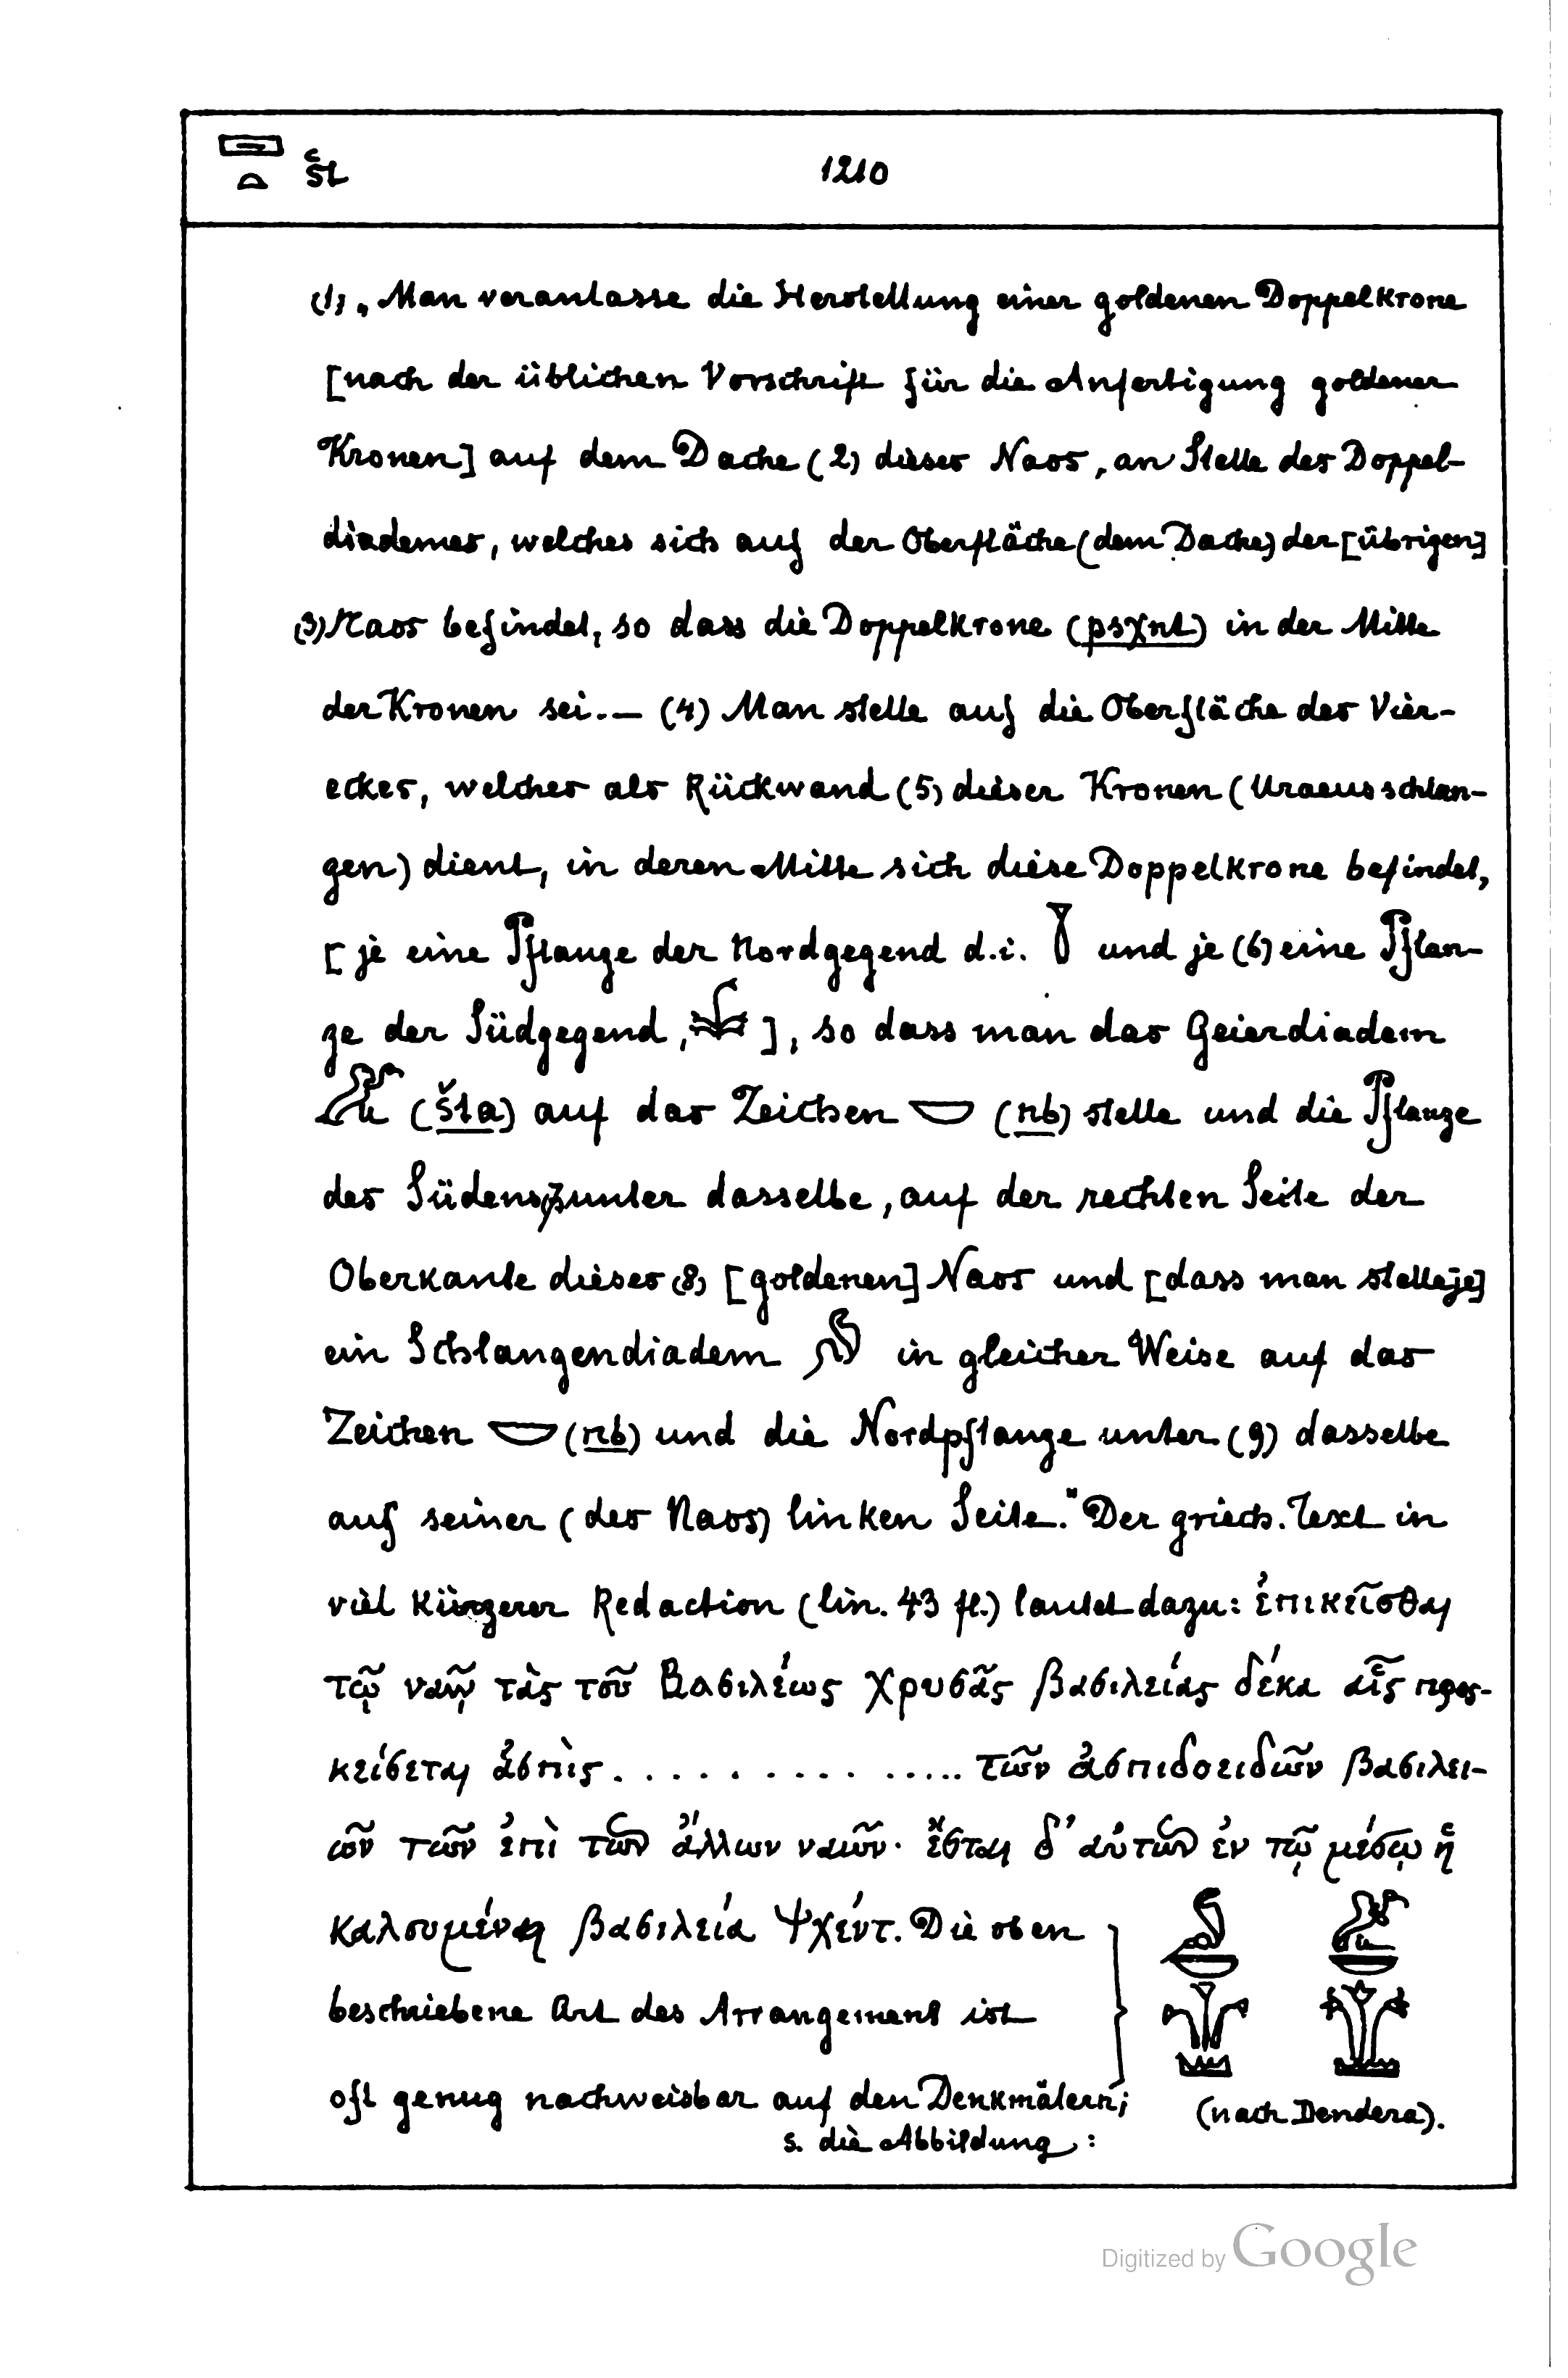 št 1210
(1) „Man veranlasse die Herstellung einer goldenen Doppelkrone
[nach der üblichen Vorschrift für die Anfertigung goldener
Kronen] auf dem Dache (2) dieses Naos, an Stelle des Doppel-
diademes, welches sich auf der Oberfläche (dem Dache) der [übrigen]
(3) Naos befindet, so dass die Doppelkrone (psχnt) in der Mitte
der Kronen sei. — (4) Man stelle auf die Oberfläche des Vier-
eckes, welches als Rückwand (5) dieser Kronen (Uraeusschlan-
gen) dient, in deren Mitte sich diese Doppelkrone befindet,
[je eine Pflanze der Nordgegend d.i. und je (6) eine Pflan-
ze der Südgegend, ], so dass man das Geierdiadem
(šta) auf das Zeichen (nb) stelle und die Pflanze
des Südens (7) unter dasselbe, auf der rechten Seite der
Oberkante dieses (8) [goldenen] Naos und [dass man stelle je]
ein Schlangendiadem in gleicher Weise auf das
Zeichen (nb) und die Nordpflanze unter (9) dasselbe
auf seiner (des Naos) linken Seite." Der griech. Text in
viel kürzerer Redaction (lin. 43 fl.) lautet dazu: ἐπικεῖσθαι
τῷ ναῷ τὰς τοῦ Βασιλέως χρυσᾶς βασιλείας δέκα αἷς προσ-
κείσεται ἀσπὶς . . . . . . . . . . . . . . τῶν ἀσπιδοειδῶν βασιλει-
ῶν τῶν ἐπὶ τῶν ἄλλων ναῶν· ἔσται δ' αὐτῶν ἐν τῷ μέσῳ ἡ
καλουμένη βασιλεία Ψχέντ. Die oben
beschriebene Art des Arrangement ist
oft genug nachweisbar auf den Denkmälern;
s. die Abbildung:
(nach Dendera).
Digitized by Google